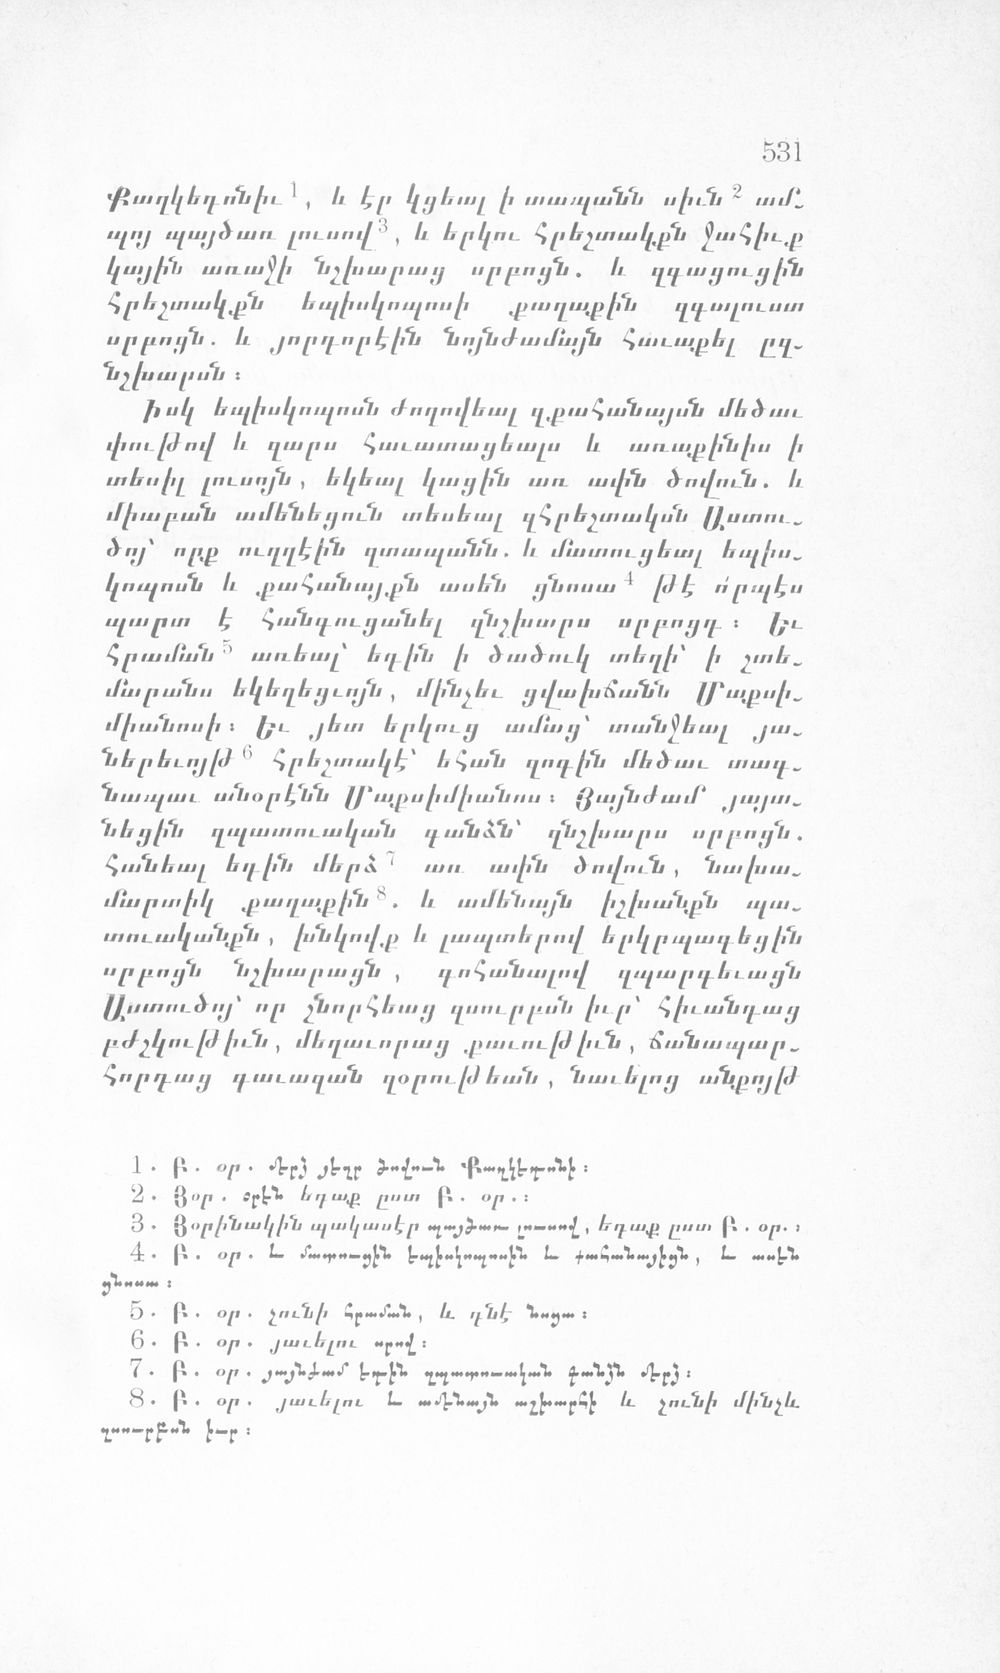 531
Քաղկեդոնիւ 1, և էր կցեալ ի տապանն սիւն 2 ամ֊
պոյ պայծառ լուսով 3, և երկու հրեշտակքն ջահիւք
կային առաջի նշխարաց սրբոցն. և զգացուցին
հրեշտակքն եպիսկոպոսի քաղաքին զգալուստ
սրբոցն. և յորդորէին նոյնժամայն հաւաքել ըզ֊
նշխարսն :
Իսկ եպիսկոպոսն ժողովեալ զքահանայսն մեծաւ
փութով և զարս հաւատացեալս և առաքինիս ի
տեսիլ լուսոյն, եկեալ կացին առ ափն ծովուն. և
միաբան ամենեցուն տեսեալ զհրեշտակսն Աստու֊
ծոյ՝ որք ուղղէին զտապանն. և մատուցեալ եպիս֊
կոպոսն և քահանայքն ասեն ցնոսա 4 թէ ո՛րպէս
պարտ է հանգուցանել զնշխարս սրբոցդ : Եւ
հրաման 5 առեալ՝ եդին ի ծածուկ տեղի՝ ի շտե֊
մարանս եկեղեցւոյն, մինչեւ ցվախճանն Մաքսի֊
միանոսի : Եւ յետ երկուց ամաց՝ տանջեալ յա֊
ներեւոյթ 6 հրեշտակէ՝ եհան զոգին մեծաւ տագ֊
նապաւ անօրէնն Մաքսիմիանոս : Յայնժամ յայտ֊
նեցին զպատուական գանձն՝ զնշխարս սրբոցն.
հանեալ եդին մերձ 7 առ ափն ծովուն, նախա֊
մարտիկ քաղաքին 8. և ամենայն իշխանքն պա֊
տուականքն, խնկովք և լապտերով երկրպագեցին
սրբոցն նշխարացն, գոհանալով զպարգեւացն
Աստուծոյ՝ որ շնորհեաց զսուրբսն իւր՝ հիւանդաց
բժշկութիւն, մեղաւորաց քաւութիւն, ճանապար֊
հորդաց գաւազան զօրութեան, նաւելոց անքոյթ
1. Բ. օր. մերձ յեզր ծովուն Քաղկեդոնի :
2. Յօր. օրէն եդաք ըստ Բ. օր. :
3. Յօրինակին պակասէր պայծառ լուսով, եդաք ըստ Բ. օր. :
4. Բ. օր. և մատուցին եպիսկոպոսին և քահանայիցն, և ասեն
ցնոսա :
5. Բ. օր. չունի հրաման, և դնէ նոցա :
6. Բ. օր. յաւելու սրով :
7. Բ. օր. յայնժամ եդին զպատուական գանձն մերձ :
8. Բ. օր. յաւելու և ամենայն աշխարհի և չունի մինչև
զսուրբսն իւր :